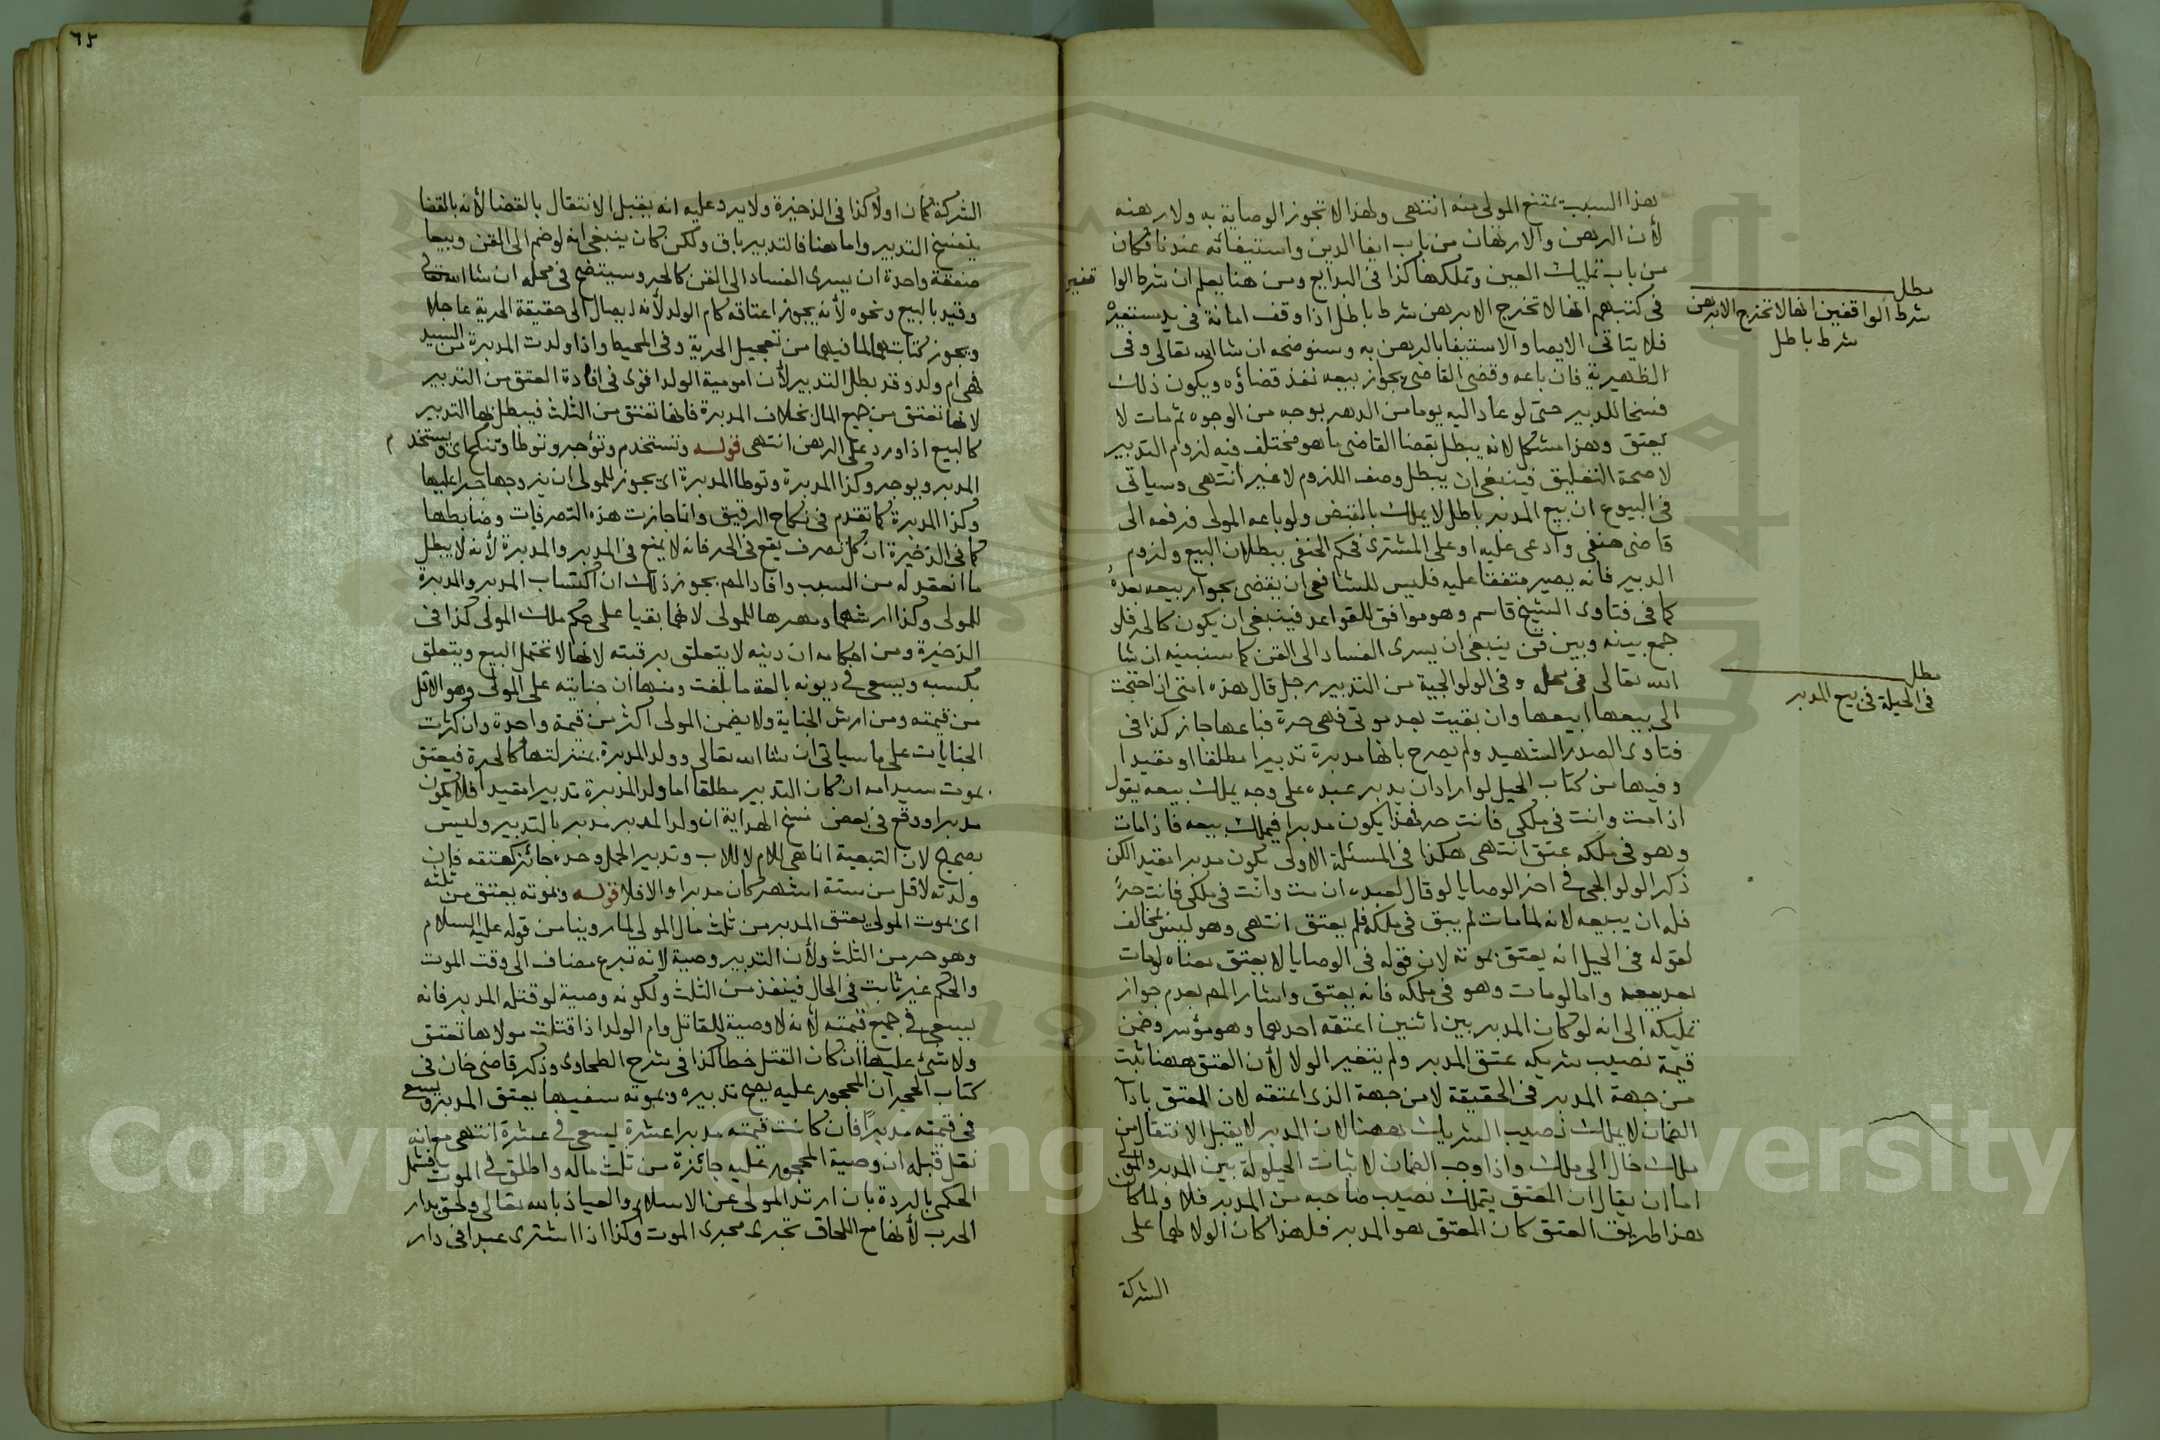 هذا السبب يمتنع المولى منه انتهى ولهذا لا تجوز الوصاية به ولا رهنه
لأن الرهن والارتهان من باب ايفا الدين واستيفائه عندنا فكان
من باب تمليك العين وتملكها كذا في البدايع ومن هنا يعلم ان شرط الواقفين
في كتبهم انها لا تخرج الا برهن شرط باطل اذا وقف امانة في يد مستعيره
فلا يتاتى الايصا والاستيفا بالرهن به وسنوضحه ان شا الله تعالى وفي
الظهيرية فان باعه وقضى القاضى بجواز بيعه نفذ قضاؤه ويكون ذلك
فسخا للتدبير حتى لو عاد اليه يوما من الدهر بوجه من الوجوه ثم مات لا
يعتق وهذا مشكل لانه يبطل بقضا القاضى ما هو مختلف فيه لزوم التدبير
لا صحة التعليق فينبغى ان يبطل وصف اللزوم لا غير انتهى وسياتى
فى البيوع ان بيع المدبر باطل لا يملك بالقبض ولو باعه المولى فرفعه الى
قاضى حنفى وادعى عليه او على المشترى فحكم الحنفى ببطلان البيع ولزوم
التدبير فانه يصير متفقا عليه فليس للشافعى ان يقضى بجواز بيعه بعده
كما فى فتاوى الشيخ قاسم وهو موافق للقواعد فينبغى ان يكون كالحر فلو
جمع بينه وبين قن ينبغى ان يسرى الفساد الى القن كما سنبينه ان شا
الله تعالى فى محله وفى الولوالجية من التدبير رجل قال هذه امتى ان احتجت
الى بيعها ابيعها وان بقيت بعد موتى فهى حرة فباعها جاز كذا فى
فتاوى الصدر الشهيد ولم يصرح بانها مدبرة تدبيرا مطلقا او مقيدا
وفيها من كتاب الحيل لو اراد ان يدبر عبده على وجه يملك بيعه يقول
اذا مت وانت فى ملكى فانت حر فهذا يكون مدبرا فيملك بيعه فاذا مات
وهو فى ملكه عتق انتهى هكذا فى المسئلة الاولى يكون مدبرا مقيدا لكن
ذكر الولوالجى فى اخر الوصايا لو قال لعبده ان مت وانت فى ملكى فانت حر
فله ان يبيعه لانه لما مات لم يبق فى ملكه فلم يعتق انتهى وهو ليس بمخالف
لقوله فى الحيل انه يعتق بموته لان قوله فى الوصايا لا يعتق معناه لو مات
بعد بيعه واما لو مات وهو فى ملكه فانه يعتق واشار المص بعدم جواز
تمليكه الى انه لو كان المدبر بين اثنين اعتقه احدهما وهو موسر وضمن
قيمة نصيب شريكه عتق المدبر ولم يتغير الولا لأن العتق ههنا ثبت
من جهة المدبر فى الحقيقة لا من جهة الذى اعتقه لان المعتق باداء
الضمان لا يملك نصيب الشريك ههنا لان المدبر لا يقبل الانتقال من
ملك خال الى ملك واذا وجب الضمان لاثبات الحيلولة بين المدبر والمولى
اما ان يقال ان المعتق يتملك نصيب صاحبه من المدبر فلا ولما كان
هذا طريق العتق كان المعتق هو المدبر فلهذا كان الولا لهما على
الشركة
مطلب
شرط الواقفين انها لا تخرج الا برهن
شرط باطل
مطلب
فى الحيلة فى بيع المدبر
٦٥
الشركة كما كان اولا كذا فى الذخيرة ولا يرد عليه انه يقبل الانتقال بالقضا لأنه بالقضا
ينفسخ التدبير واما هنا فالتدبير باق ولكن كان ينبغى انه لو ضم الى القن وبيعا
صفقة واحدة ان يسرى الفساد الى القن كالحر وسيتضح فى محله ان شا الله تعالى
وقيد بالبيع ونحوه لأنه يجوز اعتاقه كام الولد لأنه ايصال الى حقيقة الحرية عاجلا
ويجوز كتابتهما لما فيها من تعجيل الحرية وفى المحيط واذا ولدت المدبرة من السيد
فهى ام ولد وقد بطل التدبير لأن امومية الولد اقوى فى افادة العتق من التدبير
لانها تعتق من جميع المال بخلاف المدبرة فانها تعتق من الثلث فيبطل بها التدبير
كالبيع اذا ورد على الرهن انتهى قوله وتستخدم وتؤجر وتوطا وتنكح اى ويستخدم
المدبر ويوجر وكذا المدبرة وتوطا المدبرة اى يجوز للمولى ان يزوجها جبرا عليها
وكذا المدبرة كما تقدم فى نكاح الرقيق وانما جازت هذه التصرفات وضابطها
كما فى الذخيرة ان كل تصرف يقع فى الحر فانه لا يمنع فى المدبر والمدبرة لأنه لا يبطل
ما انعقد له من السبب وافاد المص بجواز ذلك ان اكتساب المدبر والمدبرة
للمولى وكذا ارشهما ومهرها للمولى لانهما بقيا على حكم ملك المولى كذا فى
الذخيرة ومن احكامه ان دينه لا يتعلق برقبته لانها لا تحتمل البيع ويتعلق
بكسبه ويسعى فى ديونه بالغة ما بلغت ومنها ان جنايته على المولى وهو الاقل
من قيمته ومن ارش الجناية ولا يضمن المولى اكثر من قيمة واحدة وان كثرت
الجنايات على ما سياتى ان شا الله تعالى وولد المدبرة بمنزلتها كالحرة فيعتق
بموت سيد امه ان كان التدبير مطلقا اما ولد المدبرة تدبيرا مقيدا فلا يكون
مدبرا ووقع فى بعض نسخ الهداية ان ولد المدبر مدبر بالتدبير وليس
بصحيح لان التبعية انما هى للام لا للاب وتدبير الحمل وحده جائز كعتقه فان
ولدته لاقل من ستة اشهر كان مدبرا والا فلا قوله وبموته يعتق من ثلثه
اى بموت المولى يعتق المدبر من ثلث مال المولى لما روينا من قوله عليه السلام
وهو حر من الثلث ولأن التدبير وصية لانه تبرع مضاف الى وقت الموت
والحكم غير ثابت فى الحال فينفذ من الثلث ولكونه وصية لو قتله المدبر فانه
يسعى فى جميع قيمته لأنه لا وصية للقاتل وام الولد اذا قتلت مولاها تعتق
ولا شئ عليها ان كان القتل خطا كذا فى شرح الطحاوى وذكر قاضى خان فى
كتاب الحجر ان المحجور عليه يصح تدبيره وبموته سفيها يعتق المدبر ويسعى
فى قيمته مدبرا فان كانت قيمته مدبرا عشرة يسعى فى عشرة انتهى مع انه
نقل قبله ان وصية المحجور عليه جائزة من ثلث ماله واطلق فى الموت فشمل
الحكمى بالردة بان ارتد المولى عن الاسلام والعياذ بالله تعالى ولحق بدار
الحرب لأنها مع اللحاق تجرى مجرى الموت وكذا اذا اشترى عبدا فى دار
Copyright © King Saud University